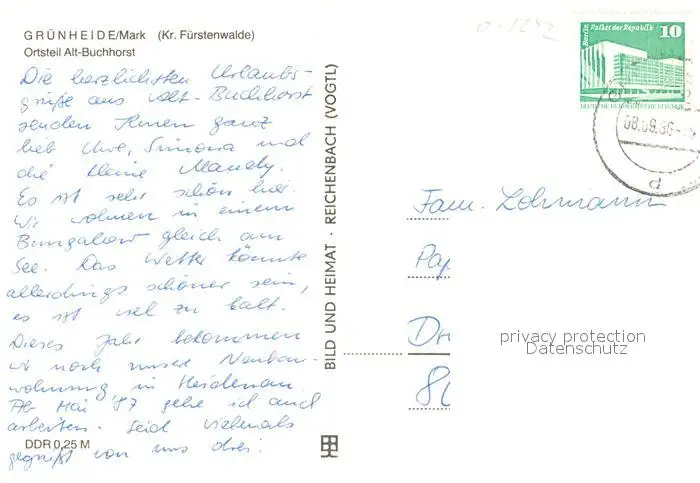 GRÜNHEIDE/Mark (Kr. Fürstenwalde)
Ortsteil Alt-Buchhorst
Die herzlichsten Urlaubs-
grüße aus Alt-Buchhorst
senden Ihnen ganz
lieb Uwe, Simona und
die kleine Mandy.
Es ist sehr schön hier.
Wir wohnen in einem
Bungalow gleich am
See. Das Wetter könnte
allerdings schöner sein,
es ist viel zu kalt.
Dieses Jahr bekommen
wir noch unsere Neubau-
wohnung in Heidenau.
Ab Mai '87 gehe ich auch
arbeiten. Seid vielmals
gegrüßt von uns drei.
DDR 0,25 M
BILD UND HEIMAT · REICHENBACH (VOGTL)
Berlin Palast der Republik
10
DEUTSCHE DEMOKRATISCHE REPUBLIK
08.09.86
d
Fam. Lohmann
Pap
Dr
80
privacy protection
Datenschutz